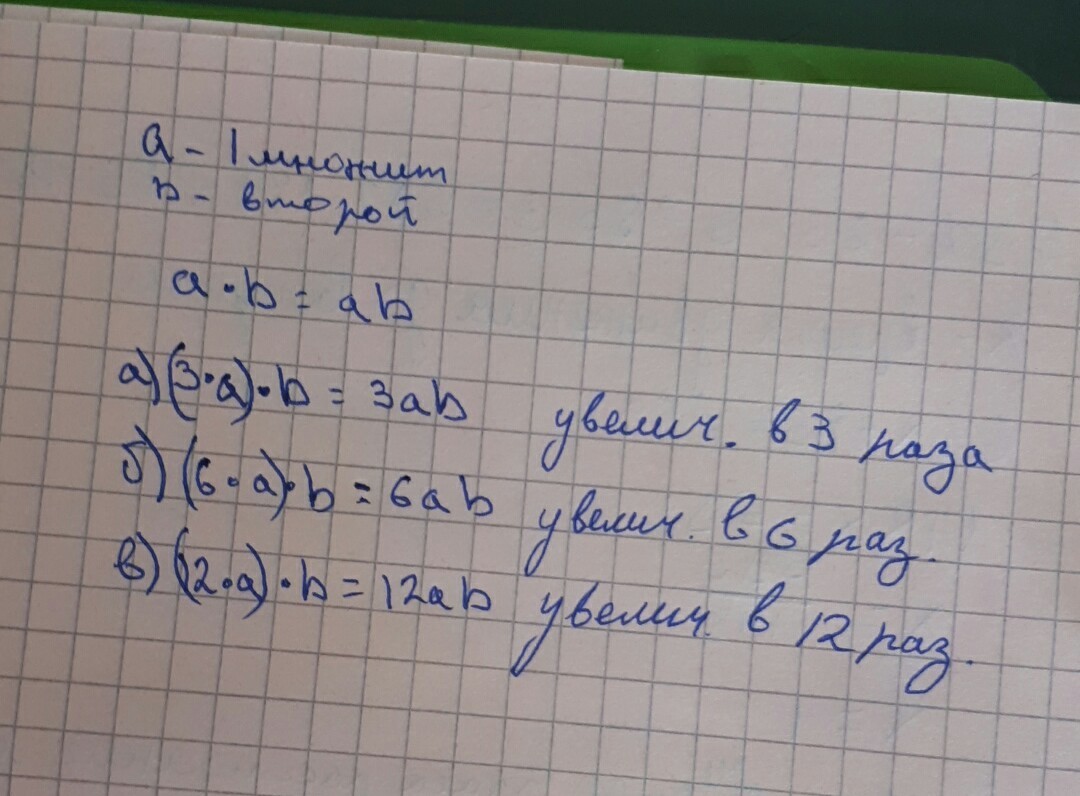 а - 1 множит
b - второй
a · b = ab
а) (3·a)·b = 3ab увелич. в 3 раза
б) (6·a)·b = 6ab увелич. в 6 раз.
в) (12·a)·b = 12ab увелич. в 12 раз.